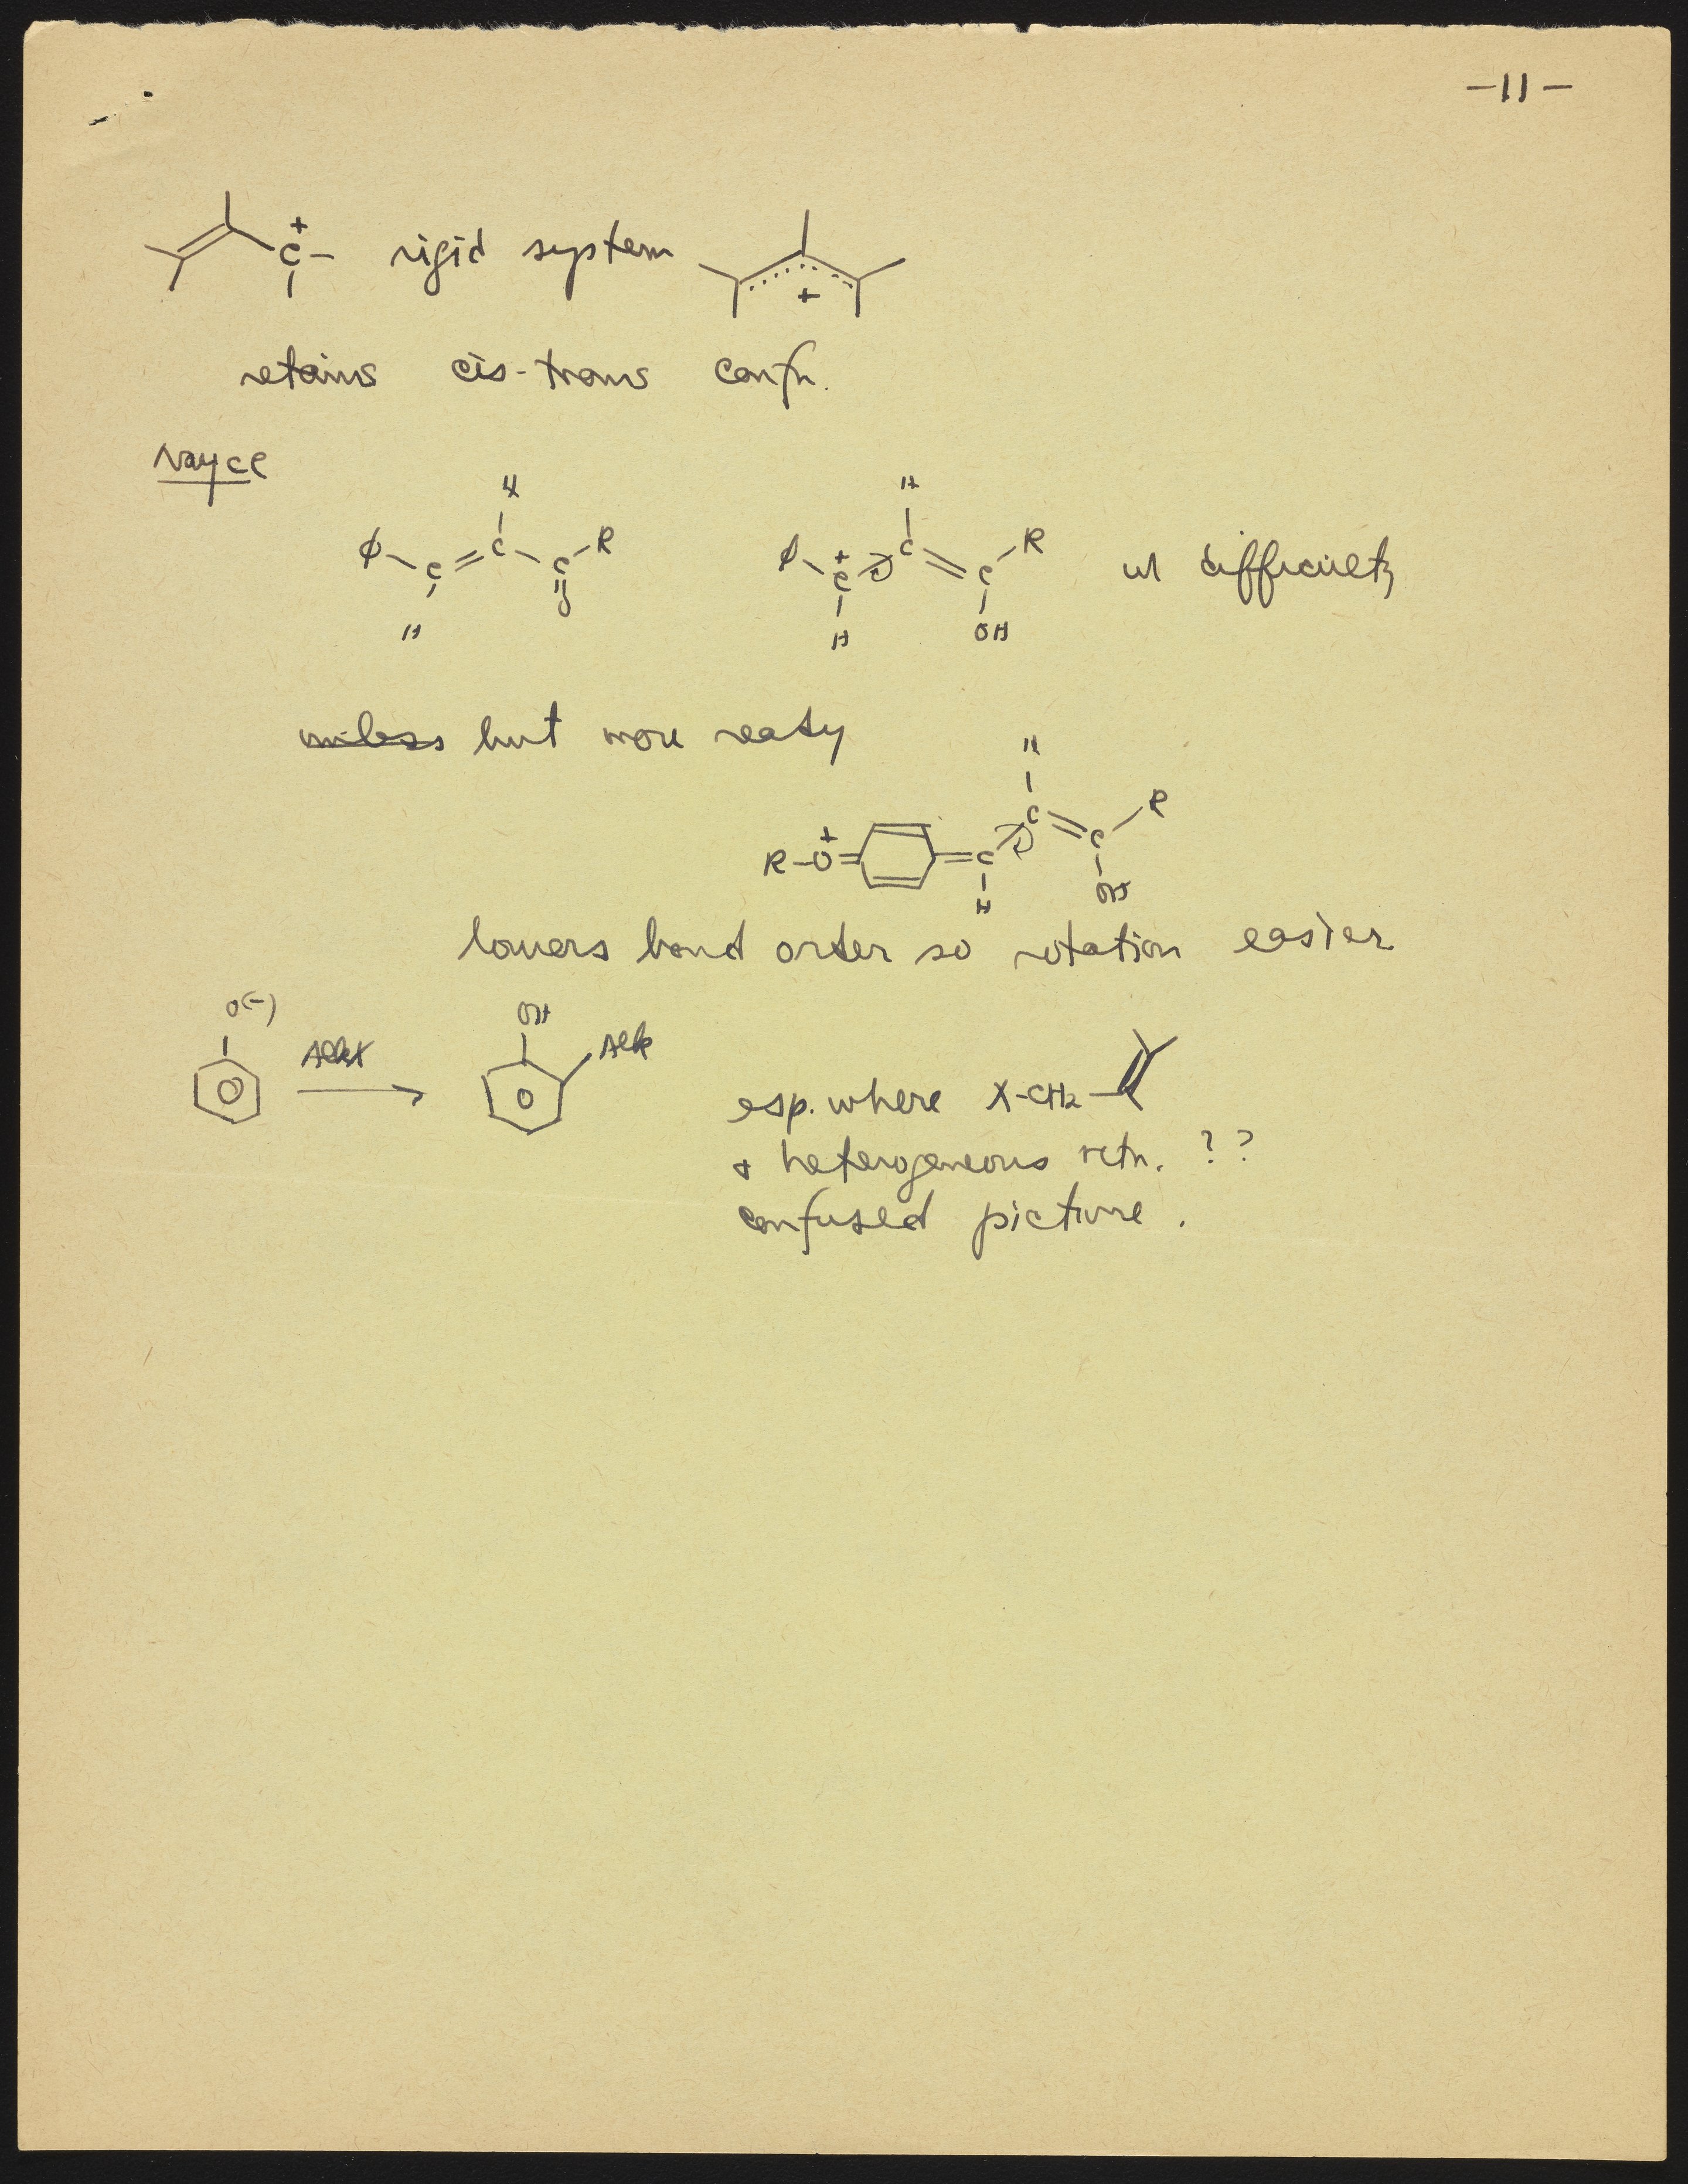 -11-
C+ rigid system +
retains cis-trans confn.
H H
φ C C C R φ C+ C C R w difficulty
H O H OH
unless but more ready
H
R-O+ C C C R
H OH
lowers bond order so rotation easier
O(-) OH
AlkX Alk
esp. where X-CH2
+ heterogeneous rctn. ??
confused picture.